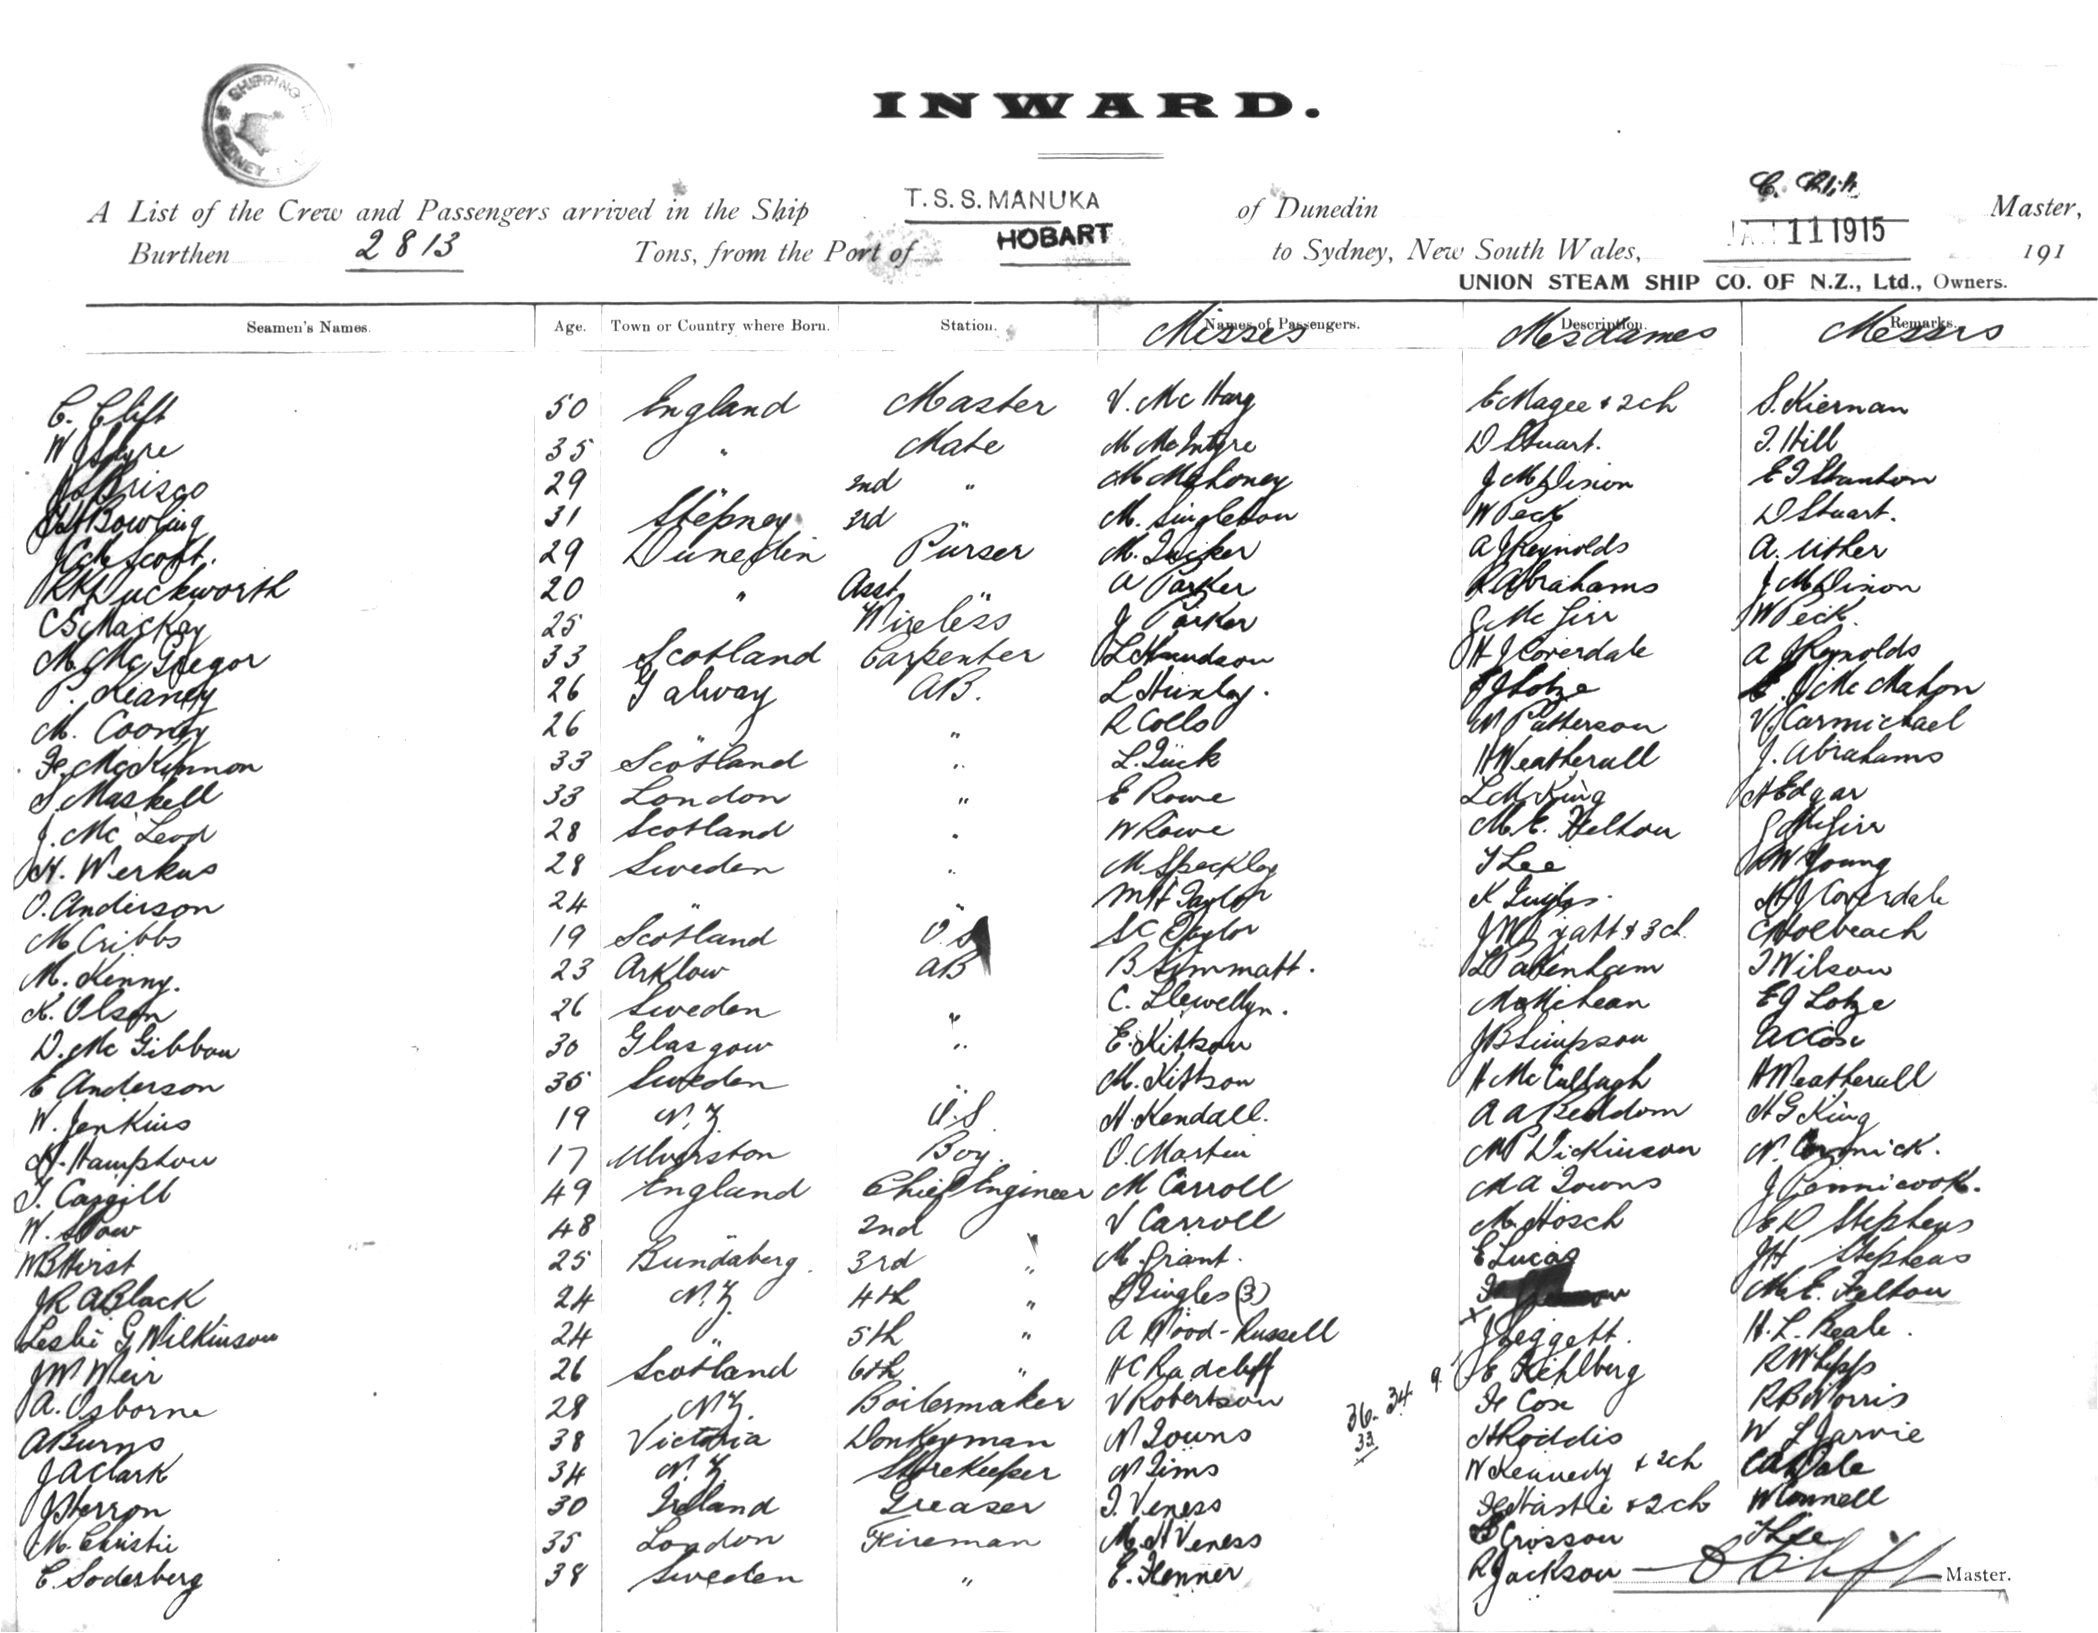 SHIPPING
SYDNEY
INWARD.
C. Clift
A List of the Crew and Passengers arrived in the Ship T.S.S. MANUKA of Dunedin Master,
Burthen 2813 Tons, from the Port of HOBART to Sydney, New South Wales, JAN 11 1915 191
UNION STEAM SHIP CO. OF N.Z., Ltd., Owners.
Seamen's Names. Age. Town or Country where Born. Station. Names of Passengers. Description. Remarks.
Misses Mesdames Messrs
C. Clift 50 England Master V. McHarg E Magee & 2 ch S. Kiernan
W 35 " Mate M McIntyre D Stuart. T. Hill
Brisco 29 " 2nd " M Mahoney J M Dixon E J Stanton
Bowling 31 Stepney 3rd " M. Singleton W Peck D Stuart.
J C M Scott. 29 Dunedin Purser M. A J Reynolds A. Uther
R K Duckworth 20 " Asst " A Parker R Abrahams J M Dixon
C S MacKay 25 Wireless J Parker G McGirr W Peck.
M McGregor 33 Scotland Carpenter L Knudson H J Coverdale A J Reynolds
P. Keaney 26 Galway AB. L Huxley. E J Lotze E. J McMahon
M. Cooney 26 " " R Collo Patterson V. Carmichael
McKinnon 33 Scotland " L. Tuck H Weatherall J. Abrahams
S Maskell 33 London " E Rowe L M King A Edgar
J. McLeod 28 Scotland " W Rowe M. E. Felton G McGirr
H. Werkus 28 Sweden " M Speckley T Lee R W Young
O. Anderson 24 " " M H Taylor K H J Coverdale
M Cribbs 19 Scotland O.S S C Taylor J W & 3 ch. C Holbeach
M. Kenny. 23 Arklow AB B Simmatt. L Pakenham T Wilson
K. Olsen 26 Sweden " C. Llewellyn. E J Lotze
D. McGibbon 30 Glasgow " E. Kittson J B Simpson A Cox
E Anderson 35 Sweden " M. Kittson H McCullagh H Weatherall
W. Jenkins 19 N.Z. O.S H. Kendall. A A Beddom H G King
H. Hampton 17 Ulverston Boy. O. Martin M P Dickinson N. Cormick.
T. Cargill 49 England Chief Engineer M Carroll M A Towns J Pennicook.
W. 48 " 2nd " V Carroll M. Hosch E R Stephens
W B Hirst 25 Bundaberg. 3rd " M. Grant. E Lucas J H Stephens
J R A Black 24 N.Z. 4th " Singles (3) M. E. Felton
Leslie G Wilkinson 24 " 5th " A Wood-Russell x J Leggett. H. L. Beale.
J W Weir 26 Scotland 6th " H C Radcliff E Kihlberg R W Lipp
A. Osborne 28 N.Z. Boilermaker V Robertson Cox R B Norris
36. 34 9.
33
A Burns 38 Victoria Donkeyman N Towns H Roddis W L Jarvie
J A Clark 34 N.Z. Storekeeper N Tims W Kennedy & 2 ch C A Dale
J Herron 30 Ireland Greaser T. Veness Hastie & 2 ch W Connell
M. Christie 35 London Fireman M. H Veness Crosson T Lee
C. Soderberg 38 Sweden " E. Fenner R Jackson
C Clift Master.